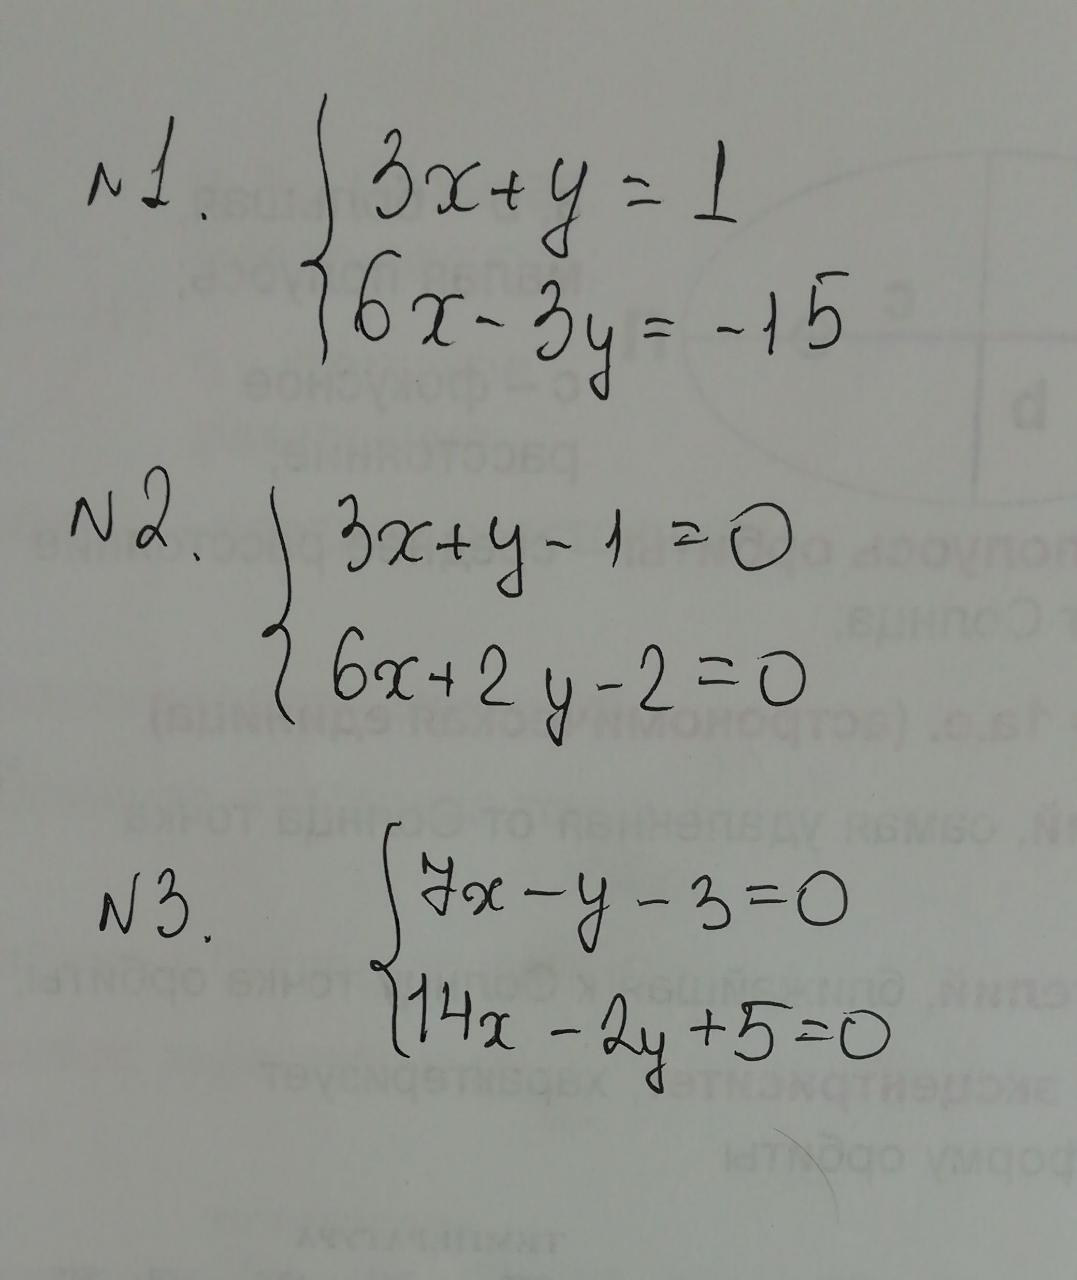 N1. { 3x + y = 1
6x - 3y = -15
N2. { 3x + y - 1 = 0
6x + 2y - 2 = 0
N3. { 7x - y - 3 = 0
14x - 2y + 5 = 0